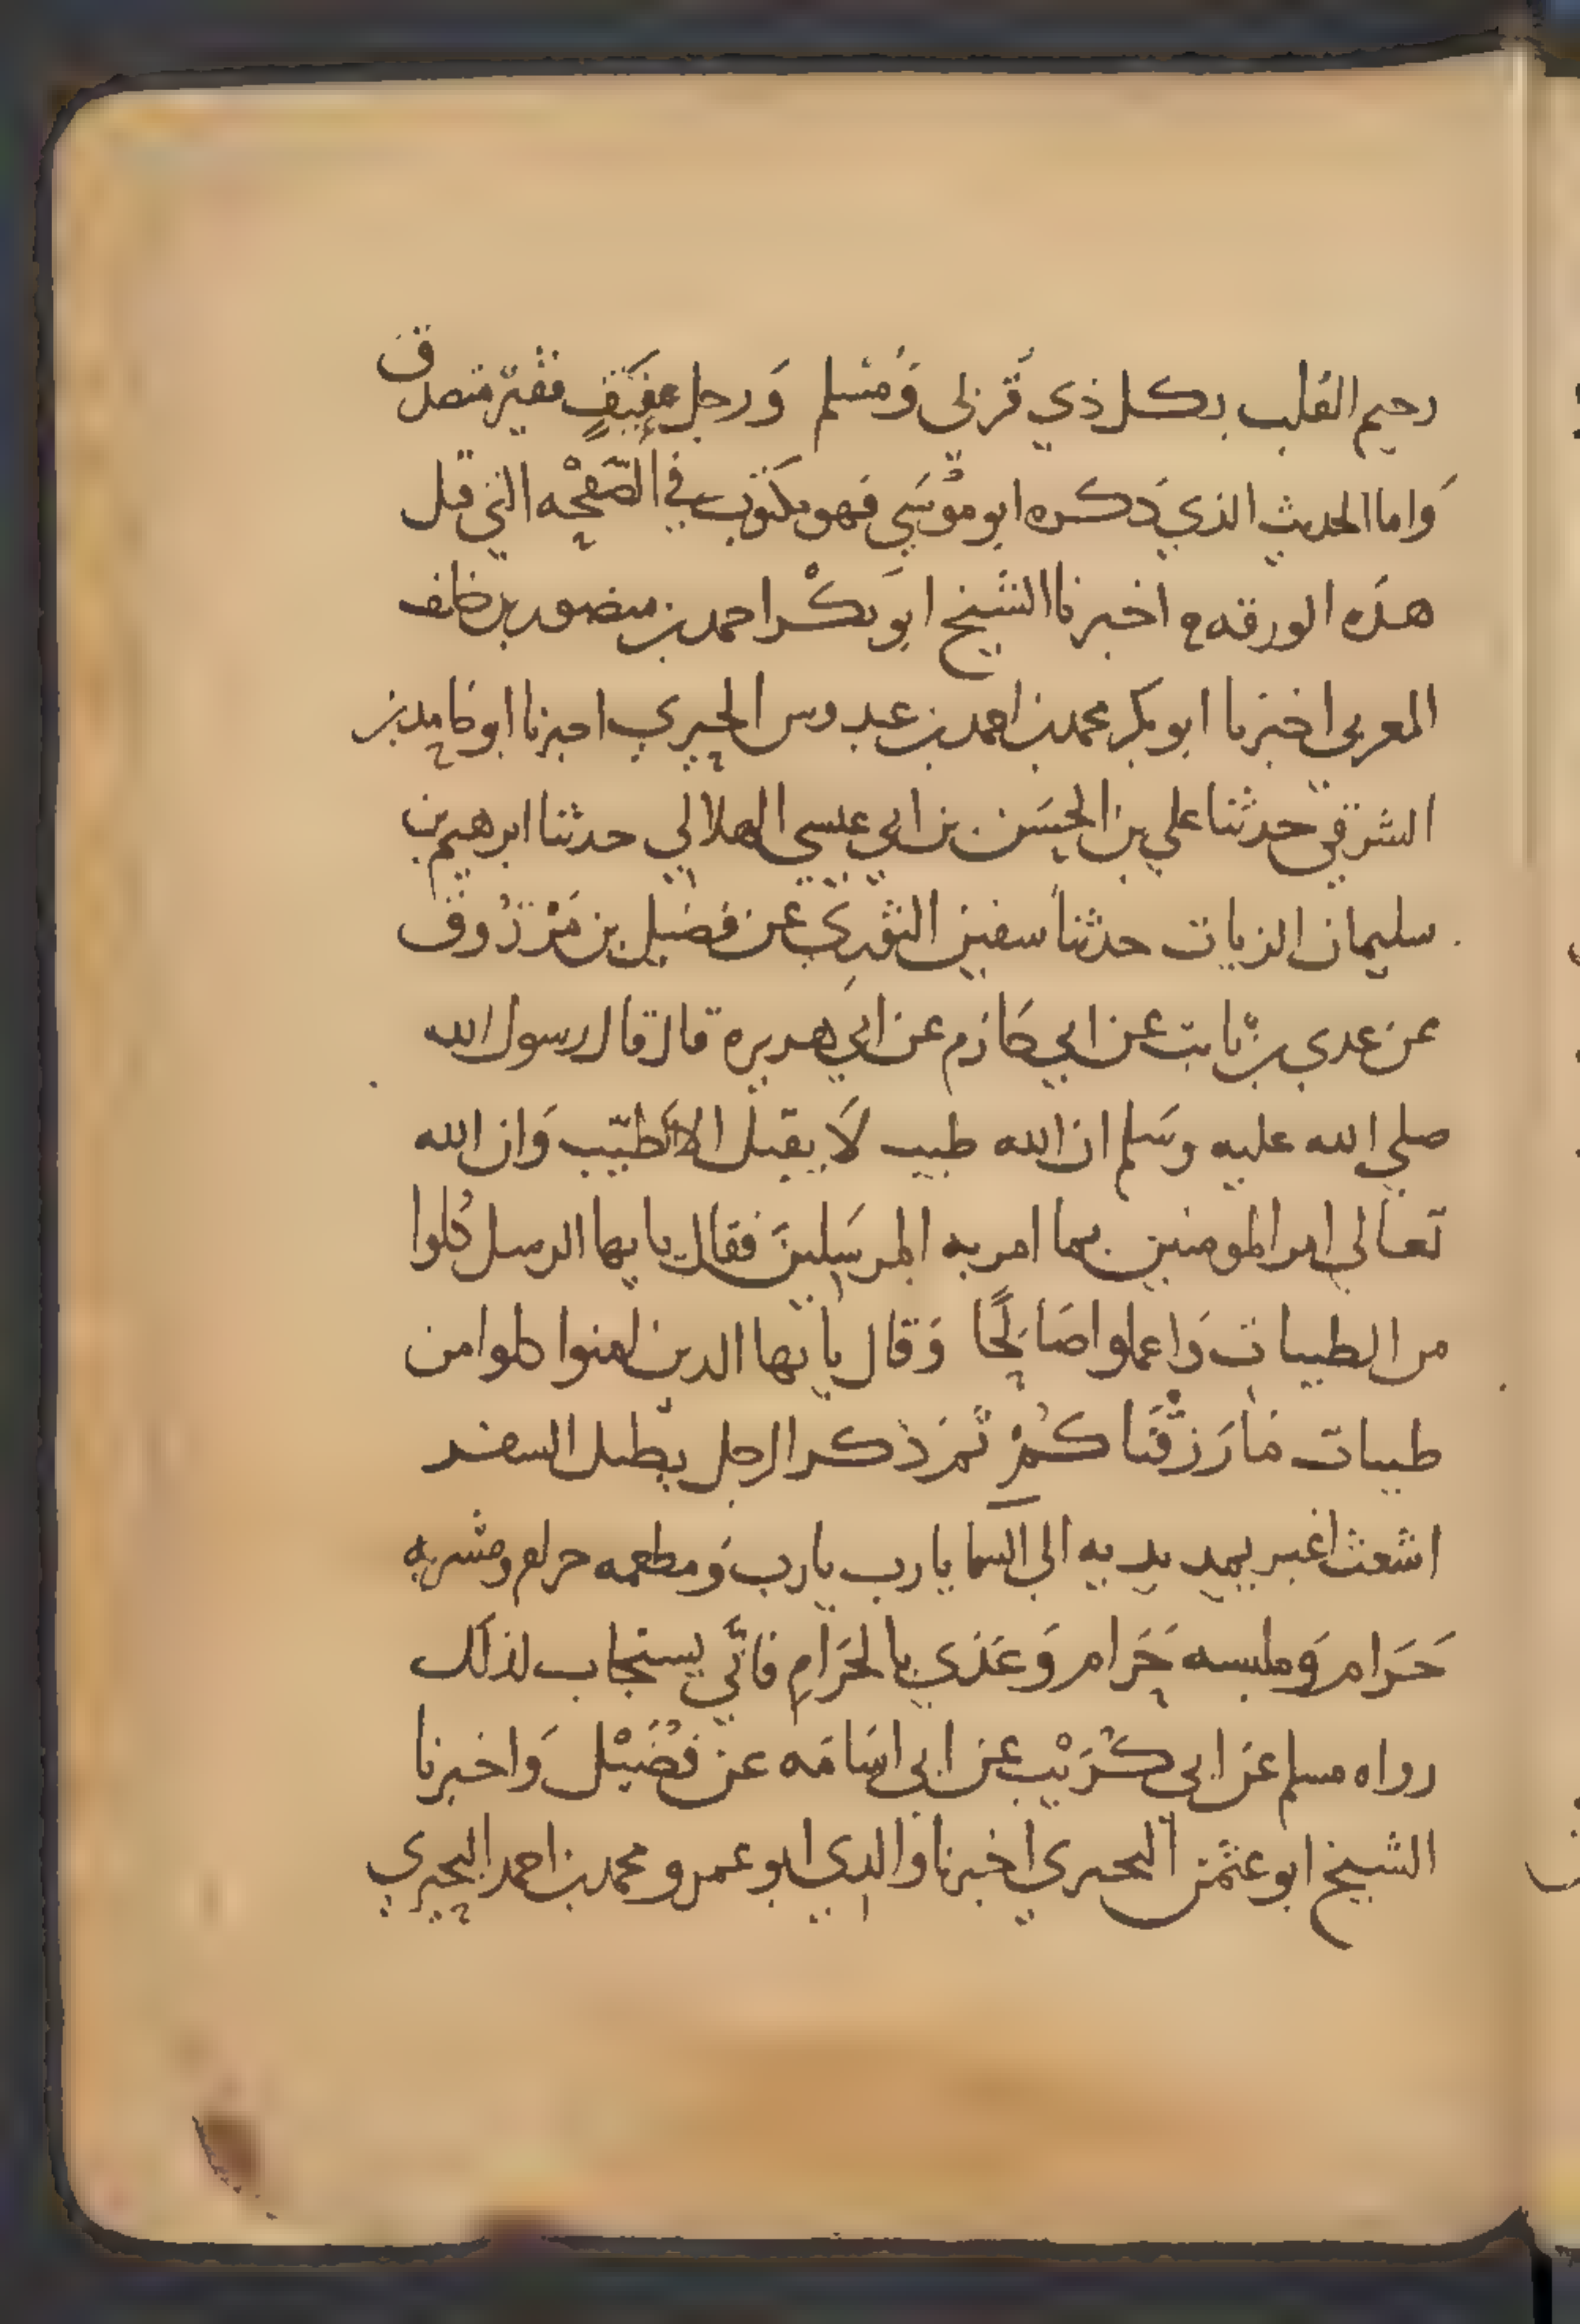 رحيم القلب بكل ذي قربي وَمُسْلم وَرجل عفيف فقير متصدق
وَاما الحديث الذي ذكره ابو موسَي فهو مكتوب في الصَّفحْه التي قبل
هذه الورقه اخبرنا الشيخ ابو بكْر احمد بن منصور بن خلف
المغربي اخبرنا ابو بكر محمد بن احمد بن عبدوس الحيري اخبرنا ابو حامد بن
الشرقي حدثنا علي بن الحسَن بن ابي عيسي الهلالي حدثنا ابرهيم بن
سليمان الزيات حدثنا سفين الثوري عن فضيل بن مَرْزُوق
عن عدي بن ثابت عن ابي حَازم عن ابي هريره قال قال رسول الله
صلي الله عليه وسَلم ان الله طيب لَا يقبل الا الطيّب وَان الله
تعالي امر المومنين بما امر به المرسَلينَ فقال يا يها الرسل كُلوا
من الطيبات وَاعملوا صَالحًا وَقال يا يها الذين امنوا كلوا من
طيبات مَا رَزقْنَاكُمْ ثمَ ذكر الرجل يطيل السفر
اشعث اغبر يمد يديه الي السما يا رب يا رب وَمطعمه حرام ومشربه
حَرَام وَملبسه حَرَام وَغذي بالحَرَامِ فانَّي يستجاب لذلك
رواه مسلم عَن ابي كُرَيْب عن ابي اسَامَه عن فُضَيْل وَاخبرنا
الشيخ ابو عثمن البحيري اخبرنا والدي ابو عمرو محمد بن احمد البحيري